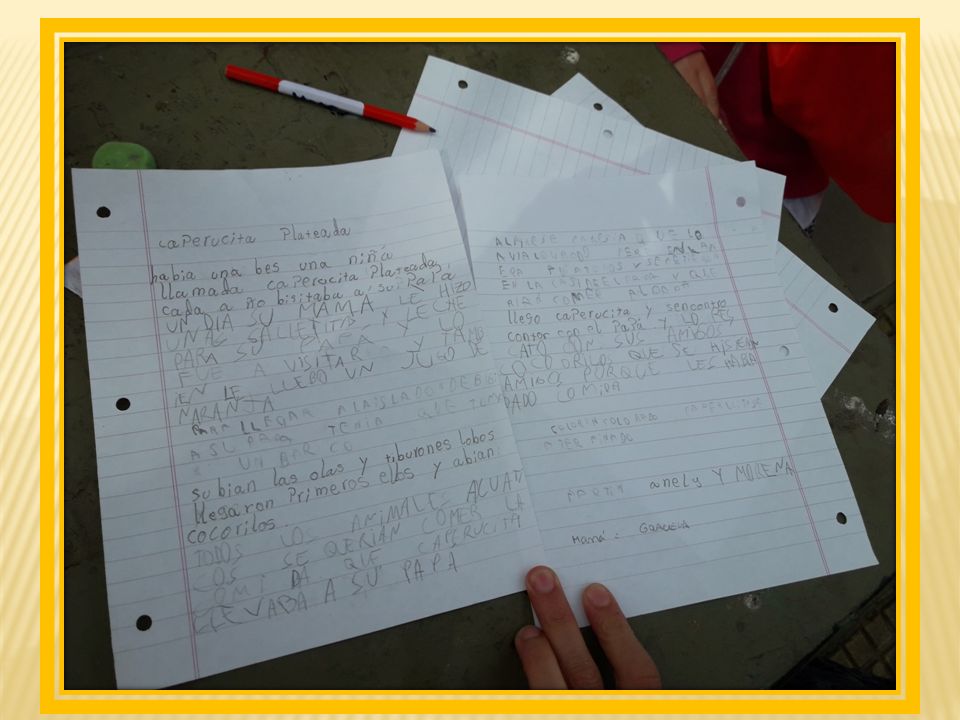 caPerucita Plateada
habia una bes una niña
llamada caPerucita Plateada
cada año bisitaba a su Papá
UN DIA SU MAMÁ LE HIZO
UNAS GALLETITAS Y LECHE
PARA SU PAPA Y LO
FUE A VISITAR Y TAMB
IEN LE LLEBO UN JUGO DE
NARANJA
PARA LLEGAR A LA ISLA DONDE
A SU PAPA TENIA QUE
UN BARCO
subian las olas y tiburones lobos
llegaron Primeros ellos y abian
cocorilos...
TODOS LOS ANIMALES ACUATI
COS SE QUERIAN COMER LA
COMIDA QUE CAPERUCITA
LLEVABA A SU PAPA
QUE LO
EN LA Y QUE
llego caPerucita y sencontro
conto con el PaPá Y LO RES
CATO CON SUS AMIGOS
COCODRILOS QUE SE HISIERON
AMIGO PORQUE LES HABIA
DADO COMIDA
COLORIN COLORADO CAPERUCITA
A TERMINADO
anely Y MORENA
Mamá: GRACIELA